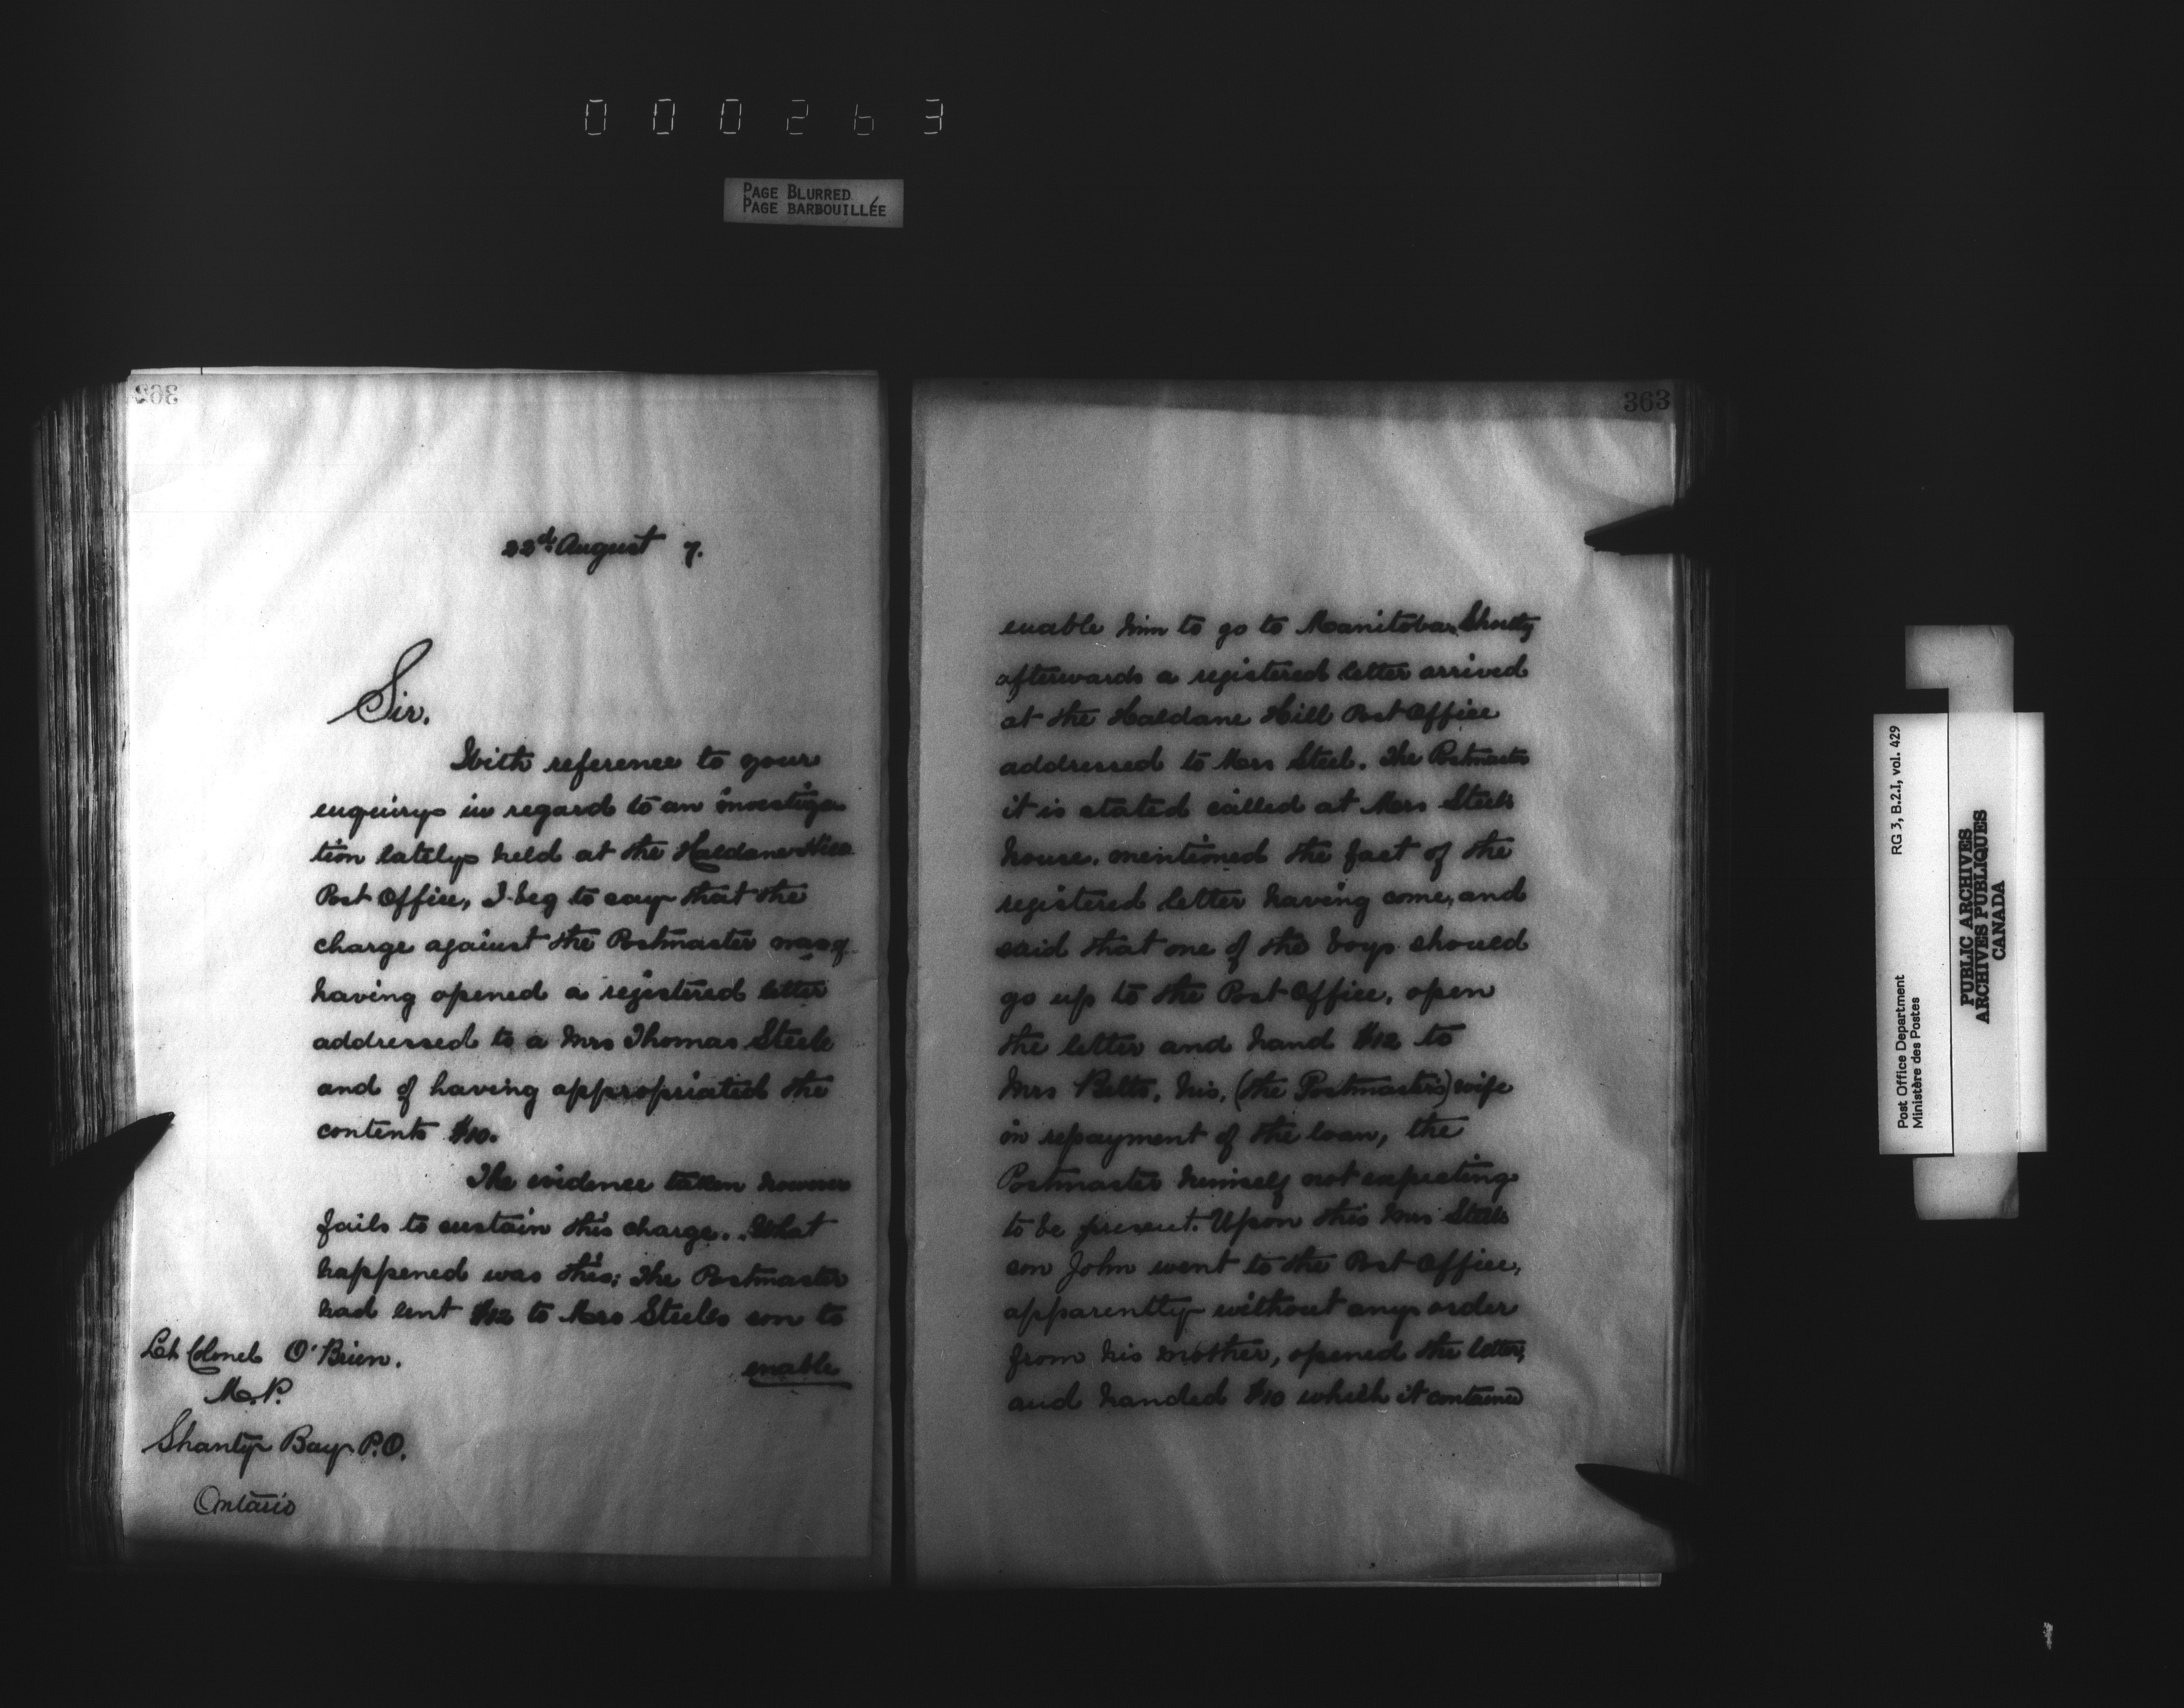 000263
PAGE BLURRED
PAGE BARBOUILLÉE
362
22d. August 7.
Sir.
With reference to your
enquiry in regard to an investiga
tion lately held at the Haldane Hill
Post Office, I beg to say that the
charge against the Postmaster was of
having opened a registered letter
addressed to a Mrs Thomas Steele
and of having appropriated the
contents $10.
The evidence taken however
fails to sustain this charge. What
happened was this; The Postmaster
had lent $12 to Mrs Steeles son to
enable
Lt Colonel O'Brien.
M.P.
Shanty Bay P.O.
Ontario
363
enable him to go to Manitoba. Shortly
afterwards a registered letter arrived
at the Haldane Hill Post Office
addressed to Mrs Steel. The Postmaster
it is stated called at Mrs Steels
house, mentioned the fact of the
registered letter having come, and
said that one of the boys should
go up to the Post Office, open
the letter and hand $12 to
Mrs Betts, his, (the Postmaster's) wife
in repayment of the loan, the
Postmaster himself not expecting
to be present. Upon this Mrs Steels
son John went to the Post Office,
apparently without any order
from his mother, opened the letter,
and handed $10 which it contained
Post Office Department
Ministère des Postes
RG 3, B.2.I, vol. 429
PUBLIC ARCHIVES
ARCHIVES PUBLIQUES
CANADA